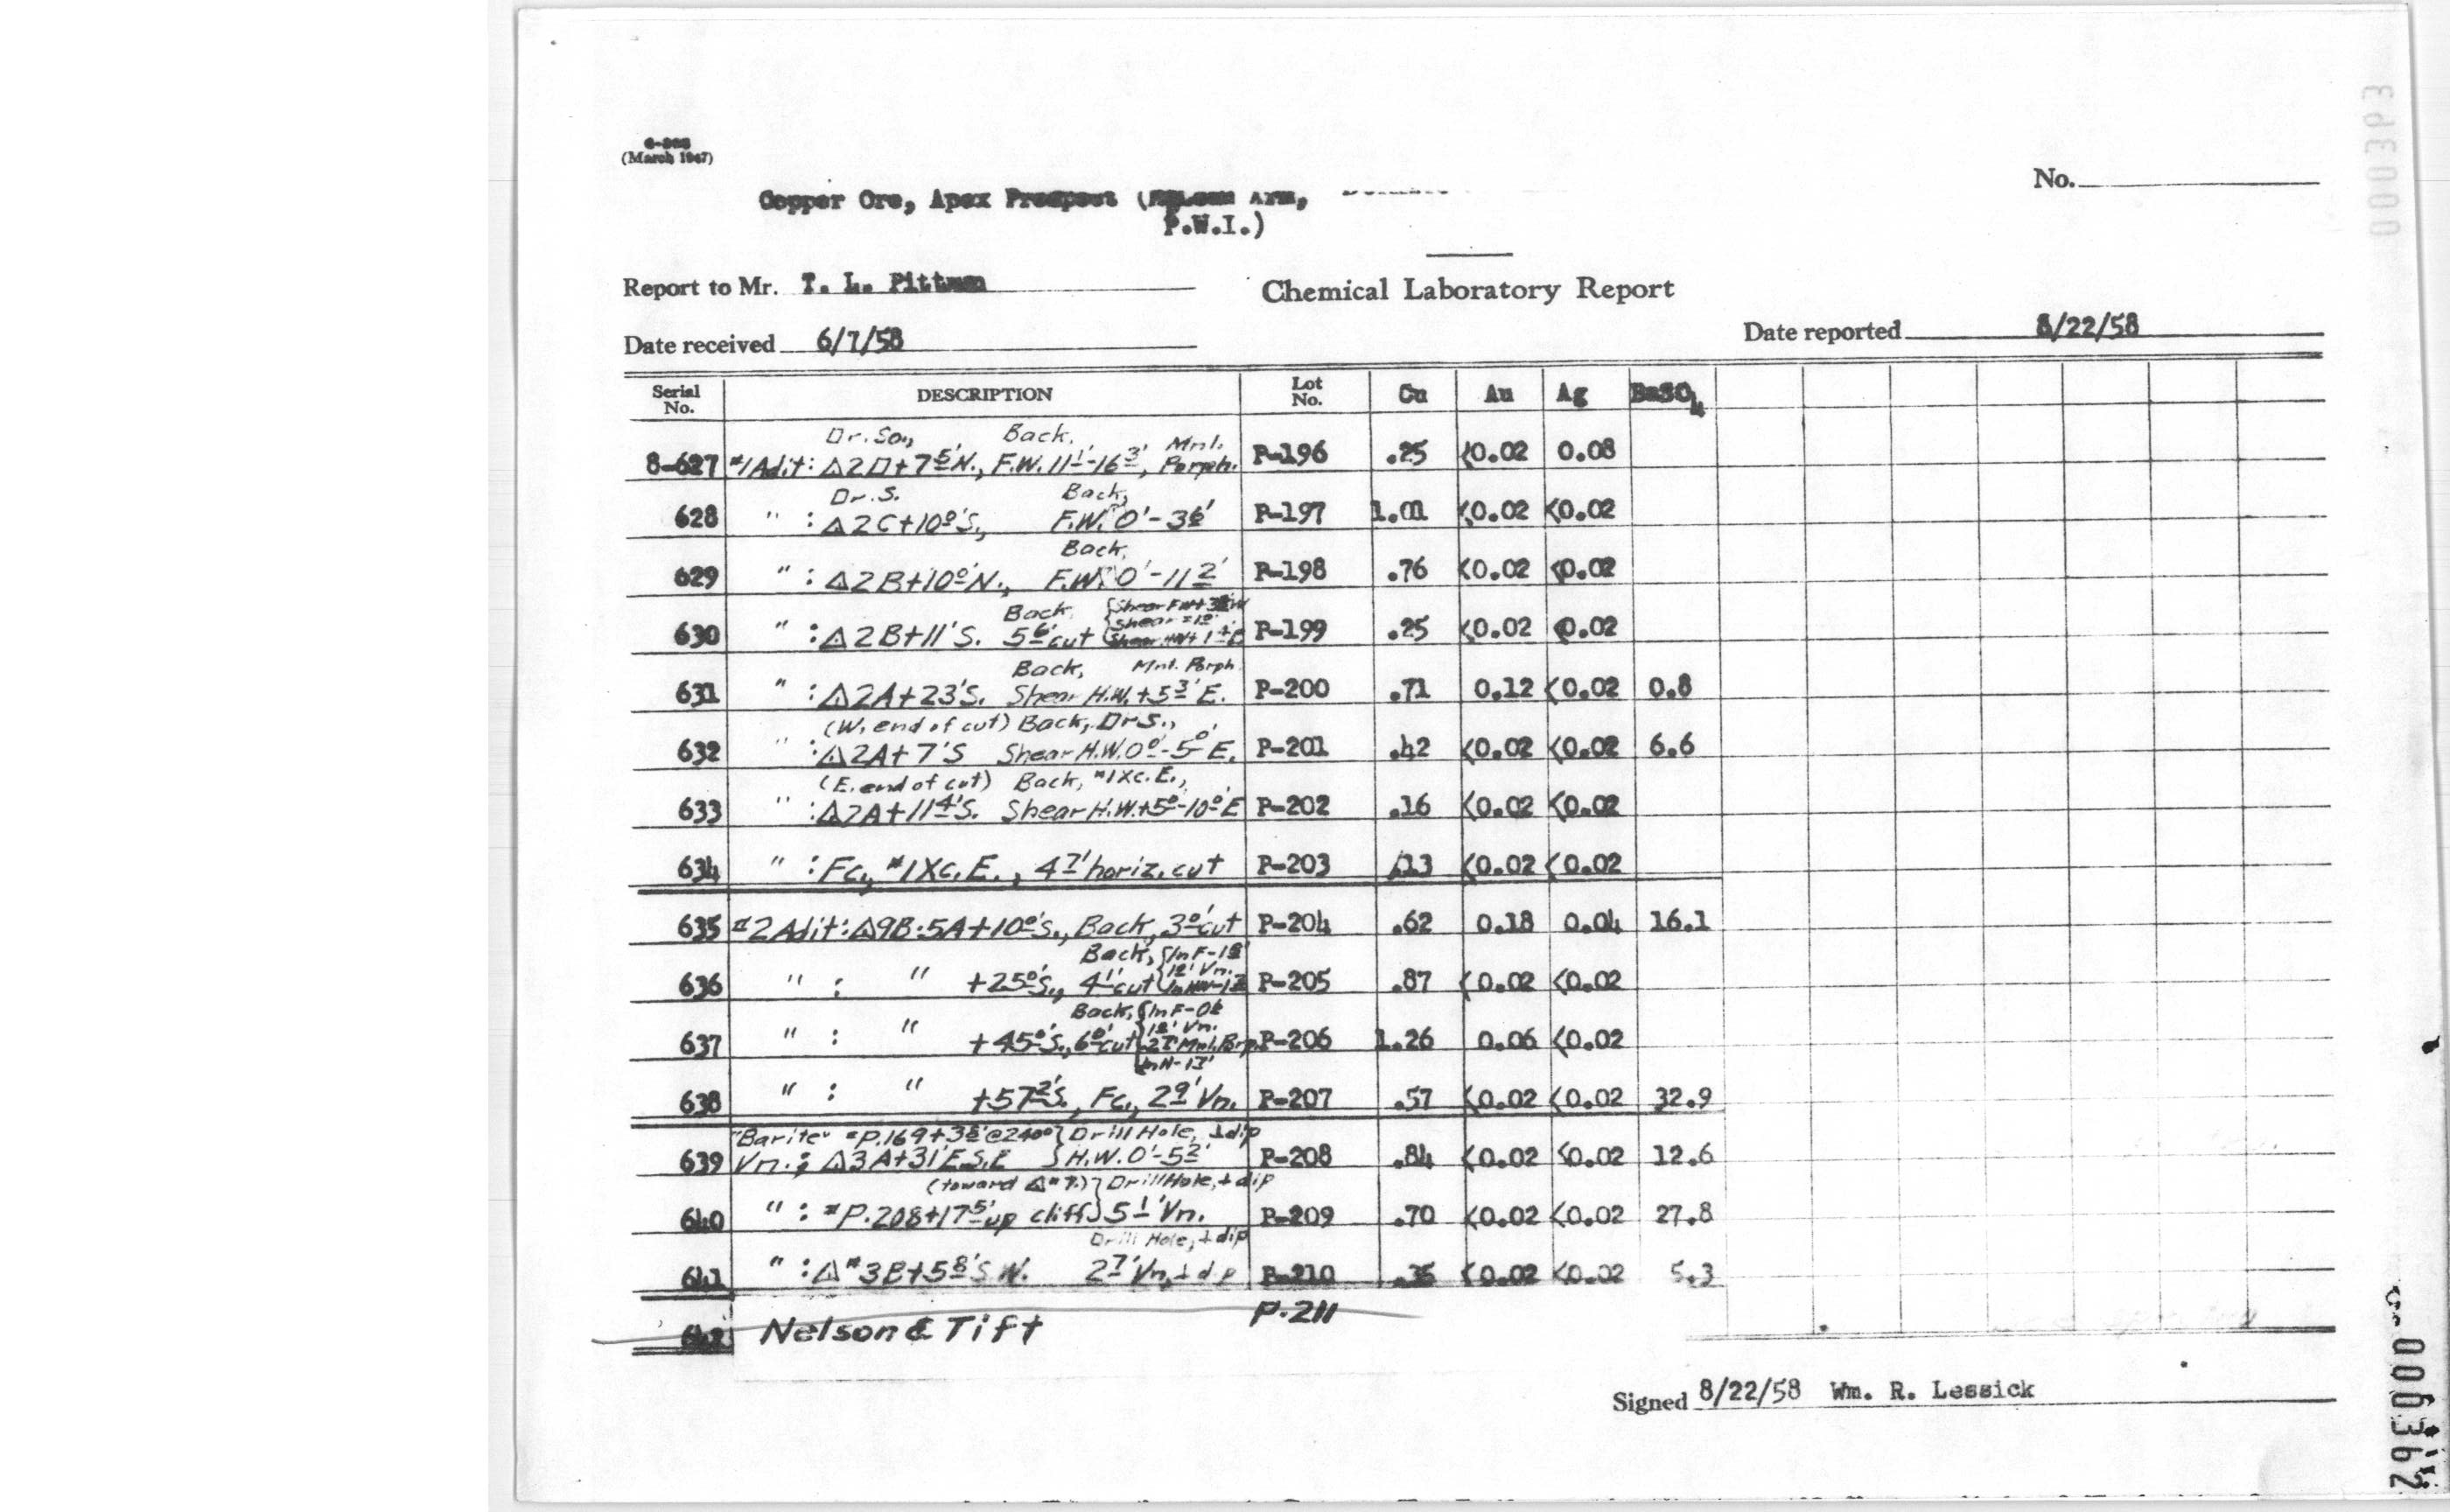 (March 1947)
No.
Copper Ore, Apex Prospect ( Arm,
P.W.I.)
Report to Mr. T. L. Pittman
Chemical Laboratory Report
Date received 6/7/58
Date reported 8/22/58
Serial No. DESCRIPTION Lot No. Cu Au Ag BaSO4
Dr. So., Back, Mnl.
8-627 #1 Adit: △2D+7 5'N., F.W. 11 1'-16 3', Porph. P-196 .25 <0.02 0.08
Dr. S. Back,
628 " : △2C+10 0'S., F.W. 0'-3 6' P-197 1.01 <0.02 <0.02
Back,
629 " : △2B+10 0'N., F.W. 0'-11 2' P-198 .76 <0.02 <0.02
Back,
630 " : △2B+11'S. 5 6' cut P-199 .25 <0.02 <0.02
Back, Mnl. Porph
631 " : △2A+23'S. Shear H.W.+5 3' E. P-200 .71 0.12 <0.02 0.8
(W. end of cut) Back, Dr S.,
632 " : △2A+7'S Shear H.W. 0 0'-5 0' E. P-201 .42 <0.02 <0.02 6.6
(E. end of cut) Back, #1 Xc. E.,
633 " : △2A+11 4'S. Shear H.W.+5 0'-10 0' E P-202 .16 <0.02 <0.02
634 " : Fc., #1 Xc. E., 4 7' horiz. cut P-203 .13 <0.02 <0.02
635 #2 Adit: △9B:5A+10 0'S., Back, 3 0' cut P-204 .62 0.18 0.04 16.1
Back,
636 " : " +25 0'S., 4 1' cut P-205 .87 <0.02 <0.02
Back,
637 " : " +45 0'S., 6 0' cut P-206 1.26 0.06 <0.02
638 " : " +57 2'S., Fc., 2 9' Vn. P-207 .57 <0.02 <0.02 32.9
"Barite" #P.169+ @240° Drill Hole, ⊥dip
639 Vn.; △3A+31'E.S.E H.W. 0'-5 3' P-208 .84 <0.02 <0.02 12.6
(toward △#7.) Drill Hole, ⊥dip
640 " : #P.208+17 5' up cliff 5 1' Vn. P-209 .70 <0.02 <0.02 27.8
Drill Hole, ⊥dip
641 " : △#3B+5 8'S.W. 2 7' Vn, ⊥dip P-210 .35 <0.02 <0.02 5.3
642 Nelson & Tift P-211
Signed 8/22/58 Wm. R. Lessick
000362